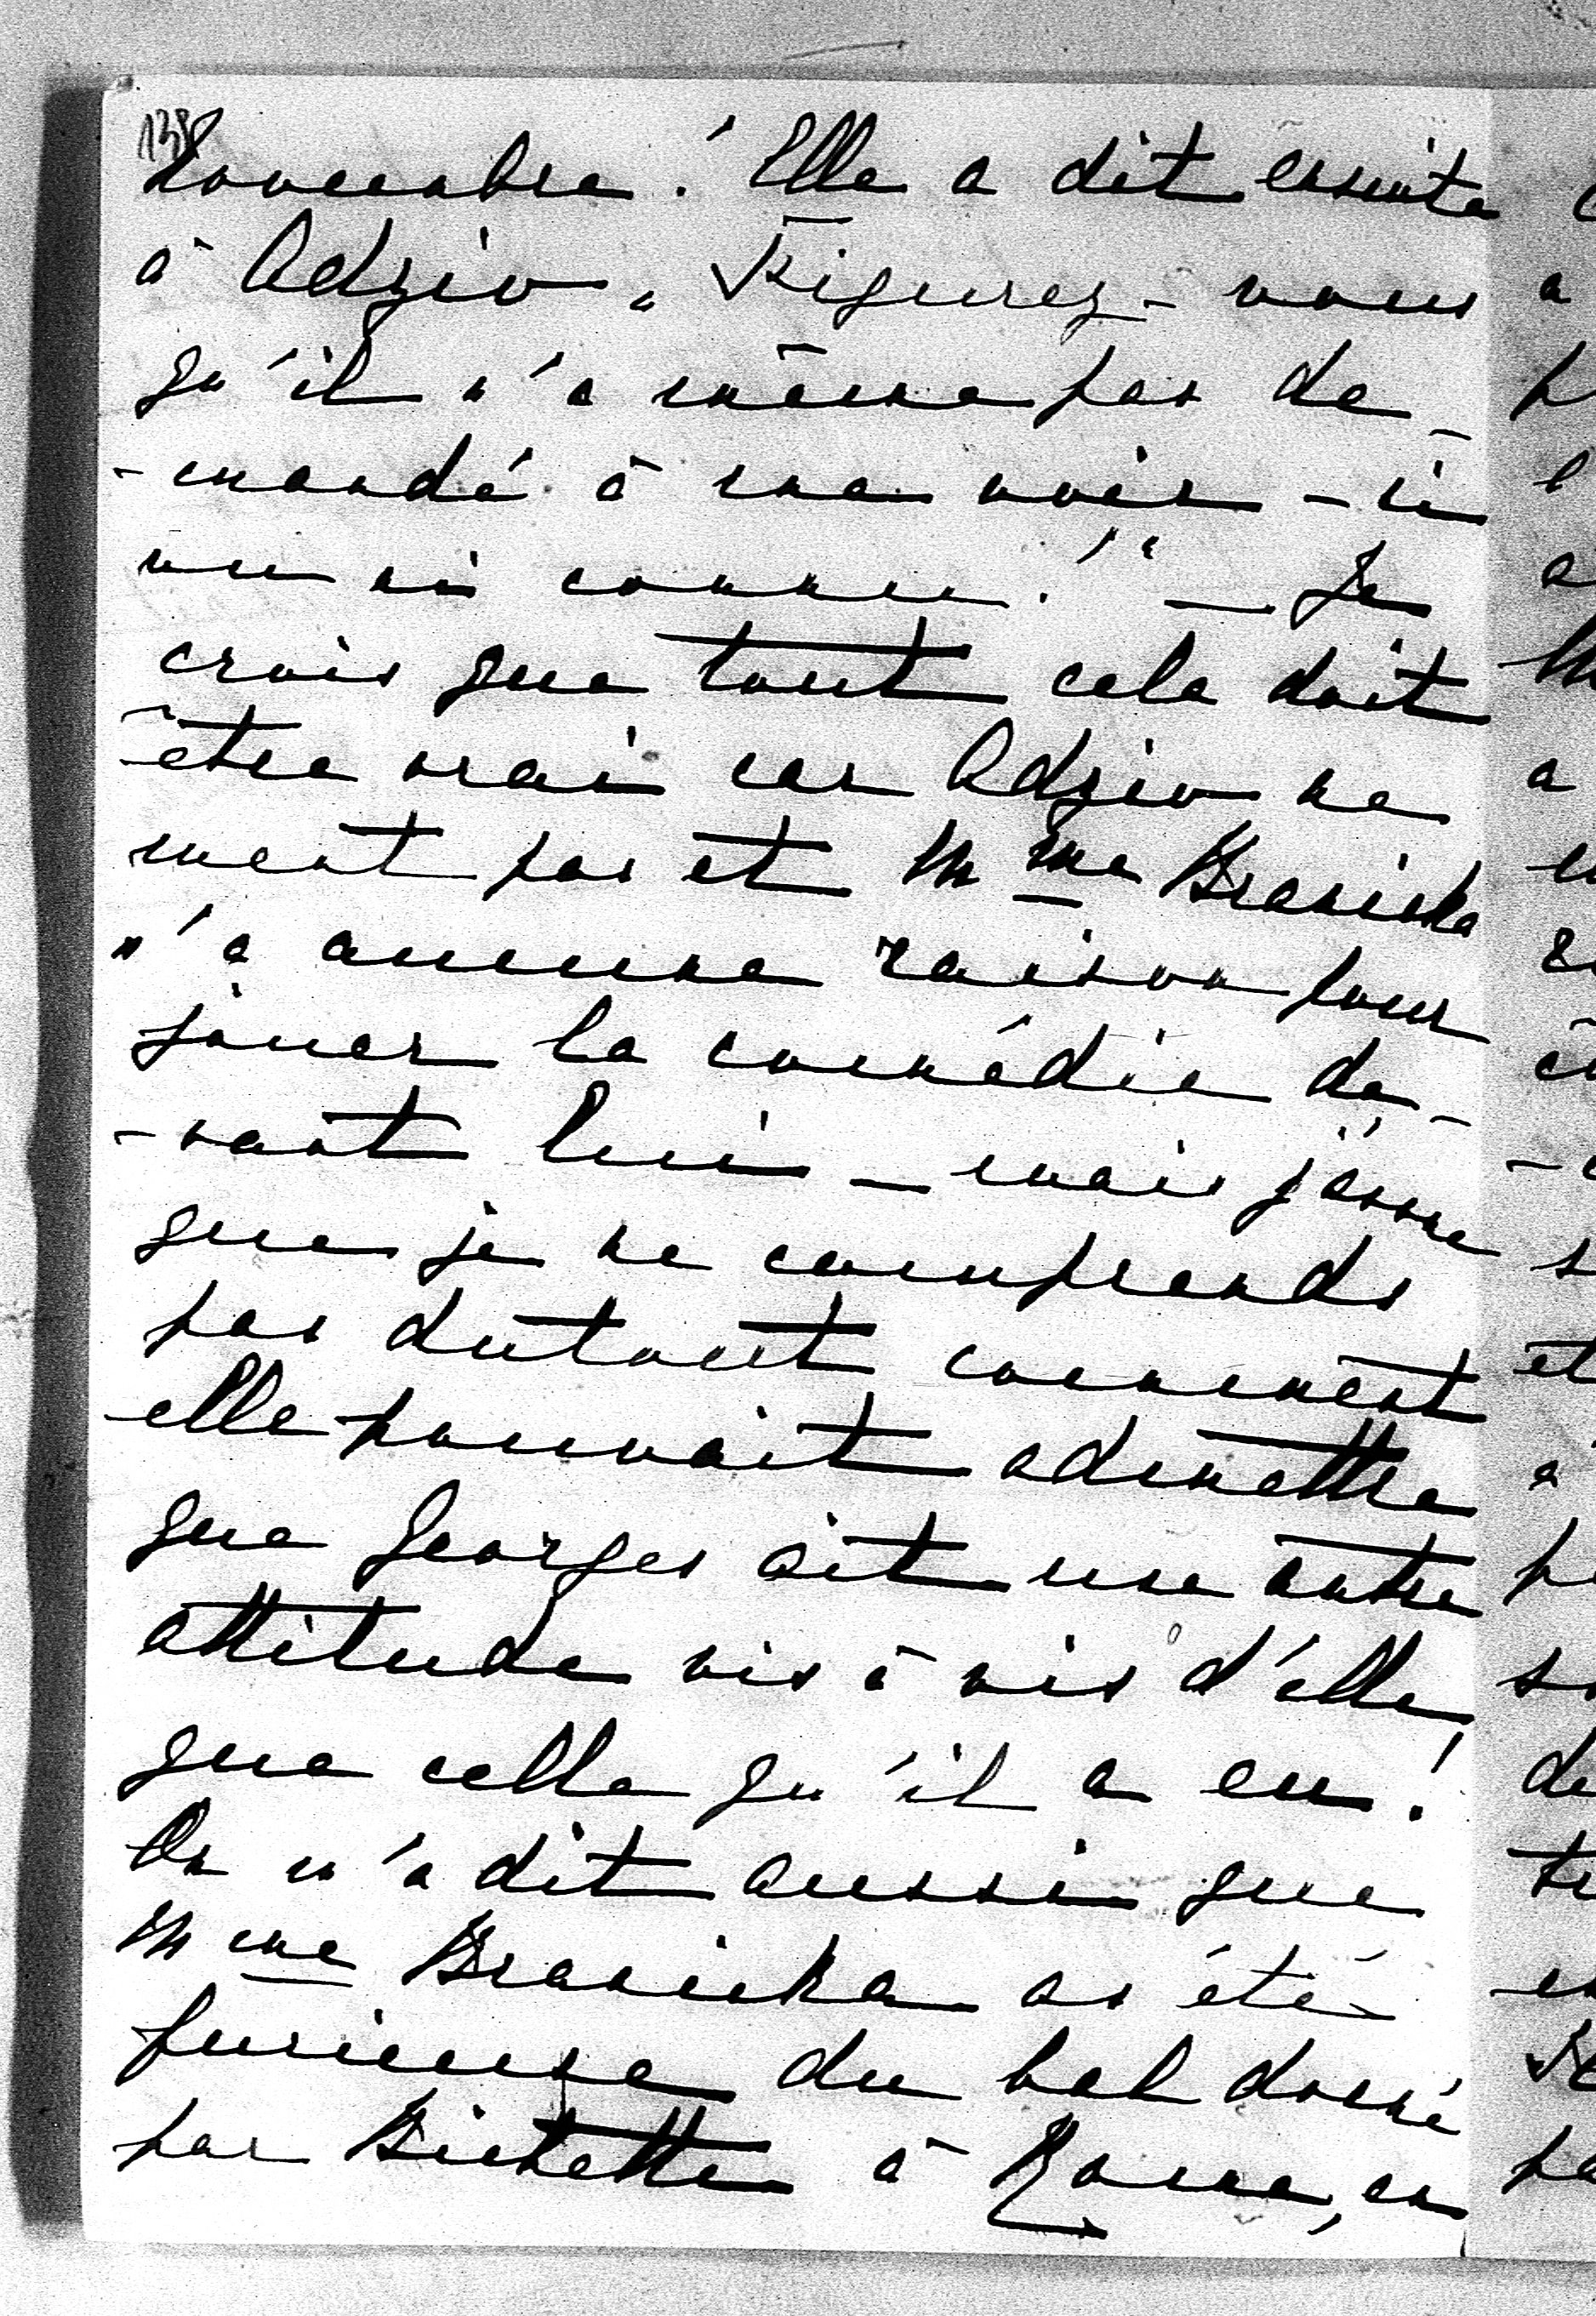 138
Novembre! Elle a dit ensuite
à Adzio „ Figurez-vous
qu'il n'a même pas de-
-mandé à me voir - ni
vu ni connu!" — Je
crois que tout cela doit
être vrai car Adzio ne
ment pas et Mme Branicka
n'a aucune raison pour
jouer la comédie de-
-vant lui — mais j'avoue
que je ne comprends
pas dutout comment
elle pouvait admettre
que Georges ait une autre
attitude vis à vis d'elle,
que celle qu'il a eu!
On m'a dit aussi que
Mme Branicka as été
furieuse du bal donné
par Bichette à Rome, en